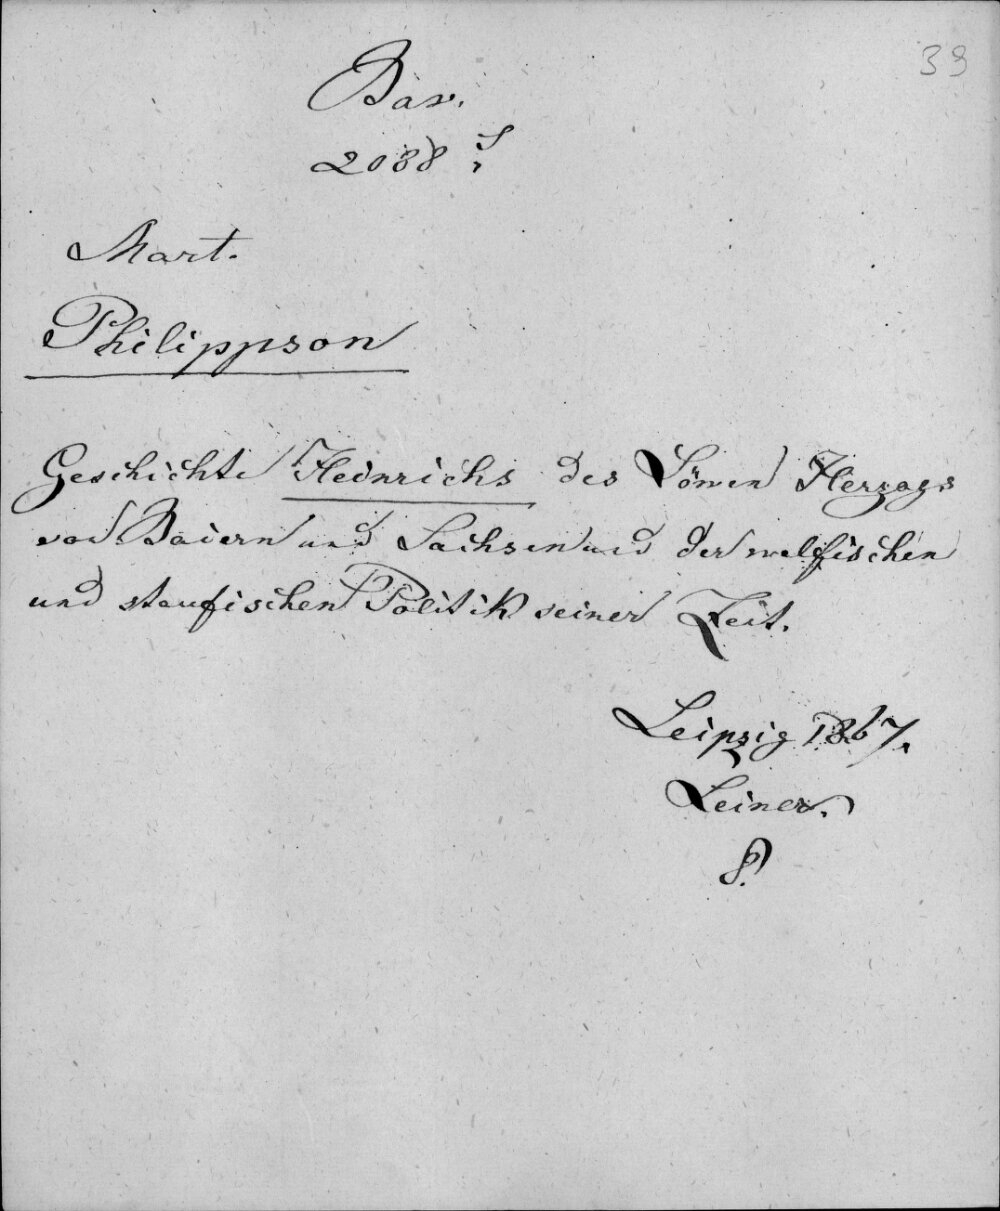 39
Bav.
2038 f
Mart.
Philippson
Geschichte Heinrichs des Löwen Herzogs
von Baiern und Sachsen und der welfischen
und staufischen Politik seiner Zeit.
Leipzig 1867.
Leiner.
8.